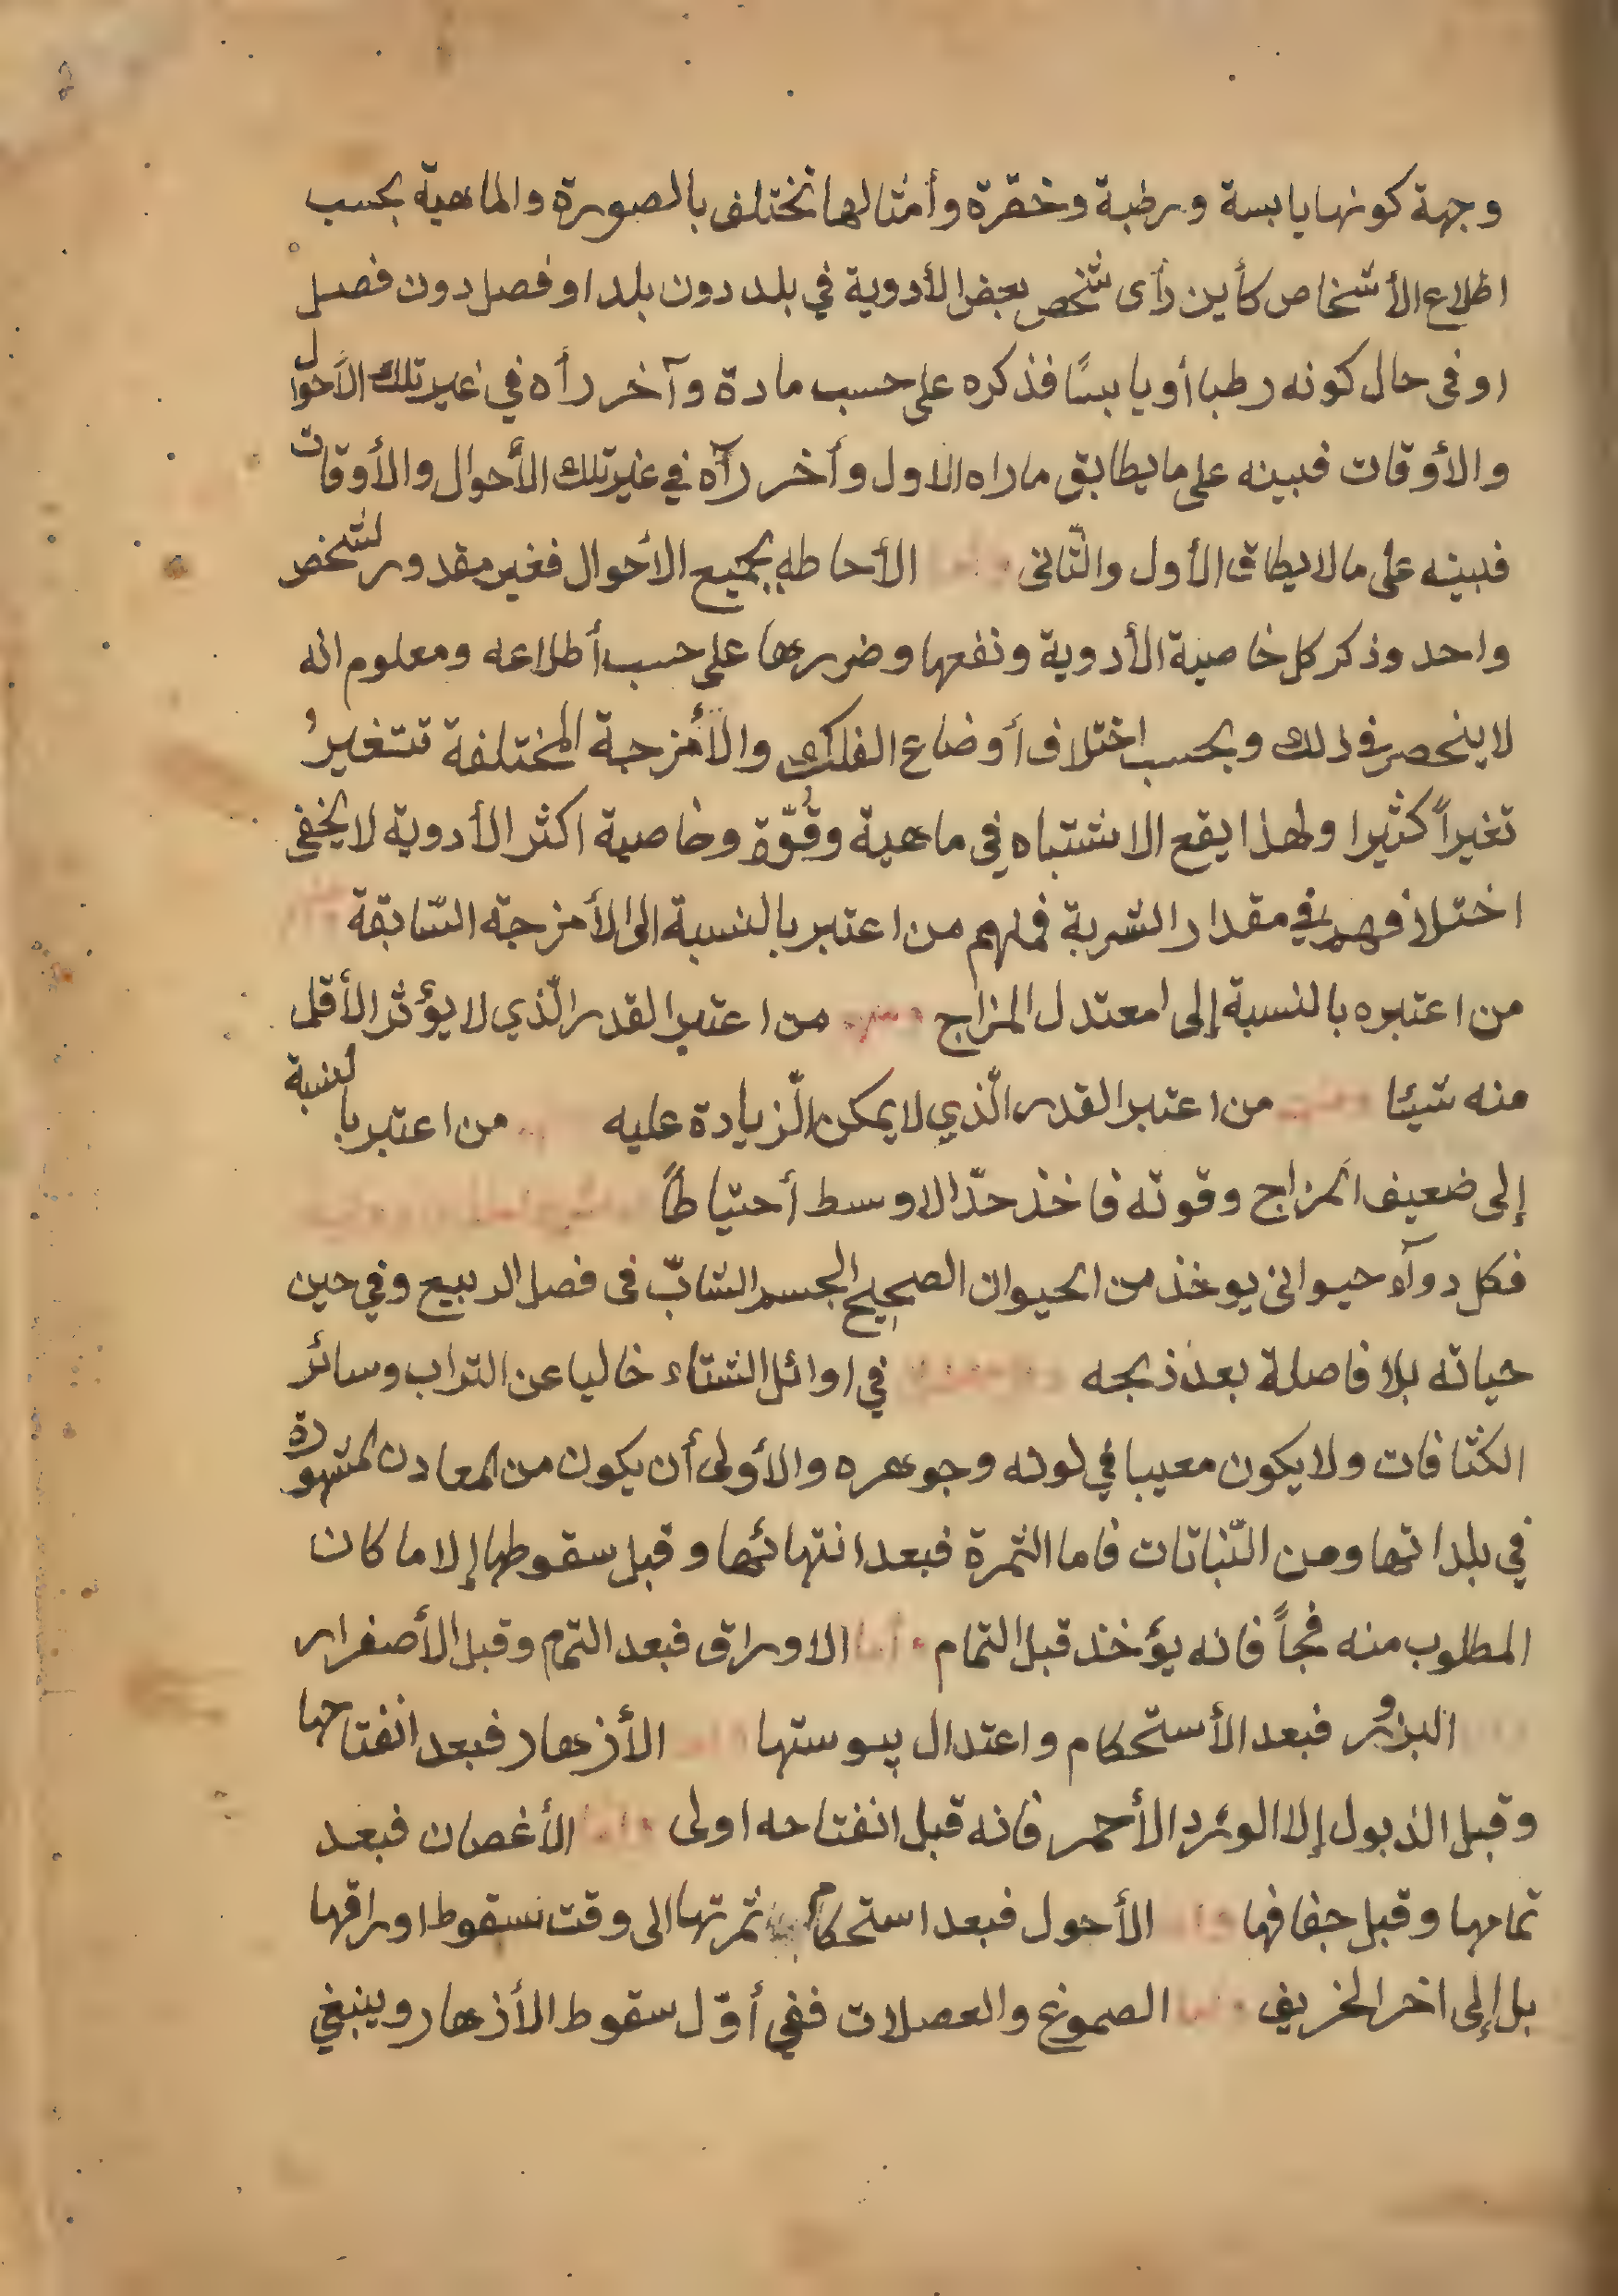 وجهة كونها يابسة ورطبة وخقرة وأمثالها تختلف بالصورة والماهية بحسب
اطلاع الأشخاص كأين رأى شخص بعض الأدوية في بلد دون بلد او فصل دون فصل
او في حال كونه رطبا أو يابسًا فذكره على حسب مادة وآخر رأه في غير تلك الأحوال
والأوقات فبينه على ما يطابق ماراه الاول وأخر رآه في غير تلك الأحوال والأوقات
فبينه على ما لا يطاق الأول والثّانى الأحاطه بجميع الأحوال فغير مقدور لشخص
واحد وذكر كل خاصية الأدوية ونفعها وضررها على حسب أطلاعه ومعلوم انه
لا ينحصر في ذلك وبحسب اختلاف أوضاع الفلك والأمزجة المختلفة تتغيرُ
تغيراً كثيرا ولهذا يقع الاشتباه في ماهية وقُوّة وخاصية اكثر الأدوية لا يخفى
اختلافهم في مقدار الشربة فمنهم من اعتبر بالنسبة الى الأمزجة السّابقة
من اعتبره بالنسبة إلى امعتدل المزاج من اعتبر القدر الّذي لا يؤثر الأقل
منه شيئا من اعتبر القدر الّذي لا يمكن الّزيادة عليه من اعتبر بالنسبة
إلى ضعيف المزاج وقوته فاخذ حدّ الاوسط أحتياطاً
فكل دوآء حيوانى يوخذ من الحيوان الصحيح الجسم الشابّ فى فصل الربيع وفي حين
حياته بلا فاصلة بعد ذبحه في اوائل الشتاء خاليا عن التراب وسائر
الكثافات ولا يكون معيبا في لونه وجوهره والأولى أن يكون من المعادن المشهورة
في بلداتها ومن النّباتات فاما الثمرة فبعد انتهائها وقبل سقوطها إلا ما كان
المطلوب منه فجاً فانه يؤخذ قبل التمام أما الاوراق فبعد التمام وقبل الأصفرار
البزور فبعد الأستحكام واعتدال يبوستها الأزهار فبعد انفتاحها
وقبل الذبول إلا الورد الأحمر فانه قبل انفتاحه اولى الأغصان فبعد
تمامها وقبل جفافها الأحول فبعد استحكام ثمرتها الى وقت سقوط اوراقها
بل إلى اخر الخريف الصموغ والعصلات ففي أوّل سقوط الأزهار وينبغي